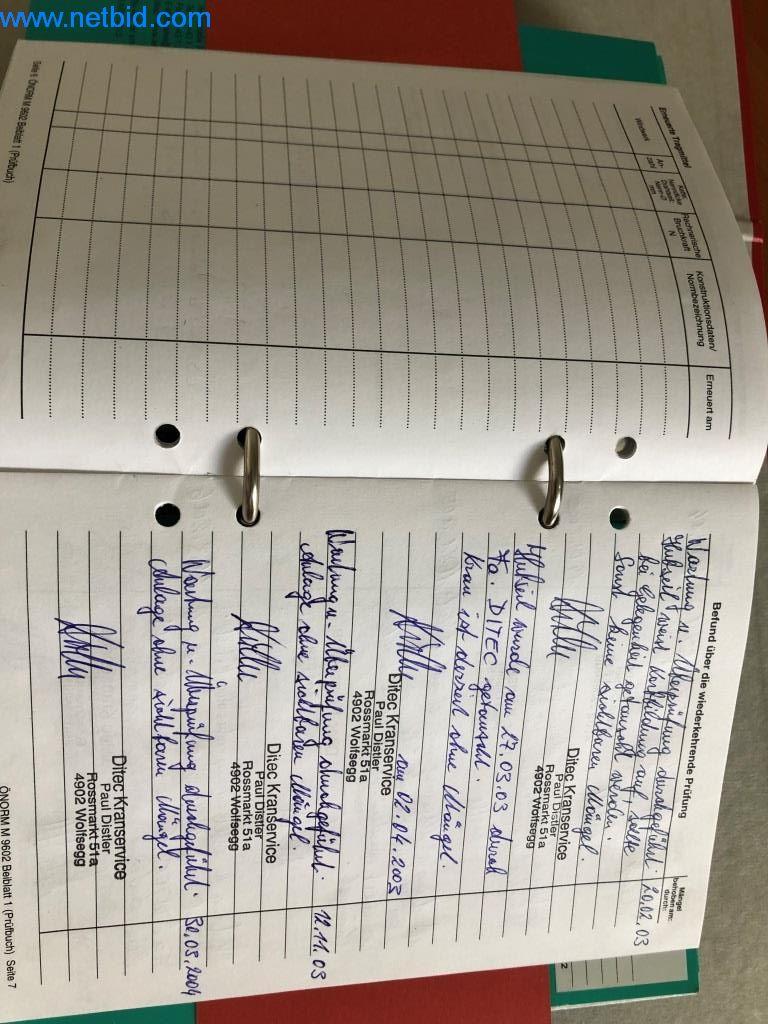 www.netbid.com
Erneuerte Tragmittel
Windwerk
An-
zahl
Konstruktionsdaten/
Normbezeichnung
Erneuert am
rechnerische
Bruchkraft
N
Seite 6 ÖNORM M 9602 Beiblatt 1 (Prüfbuch)
Befund über die wiederkehrende Prüfung
Mängel
behoben am:
durch:
Wartung u. Überprüfung durchgeführt. 20.02.03
Hubseil weist Korbbildung auf, sollte
bei Gelegenheit getauscht werden.
Sonst keine sichtbaren Mängel.
Ditec Kranservice
Paul Distler
Rossmarkt 51a
4902 Wolfsegg
Hubseil wurde am 27.03.03 durch
Fa. DITEC getauscht.
Kran ist derzeit ohne Mängel.
am 02.04.2003
Ditec Kranservice
Paul Distler
Rossmarkt 51a
4902 Wolfsegg
Wartung u. Überprüfung durchgeführt. 12.11.03
Anlage ohne sichtbaren Mängel.
Ditec Kranservice
Paul Distler
Rossmarkt 51a
4902 Wolfsegg
Wartung u. Überprüfung durchgeführt. 30.09.2004
Anlage ohne sichtbaren Mängel.
Ditec Kranservice
Paul Distler
Rossmarkt 51a
4902 Wolfsegg
ÖNORM M 9602 Beiblatt 1 (Prüfbuch) Seite 7